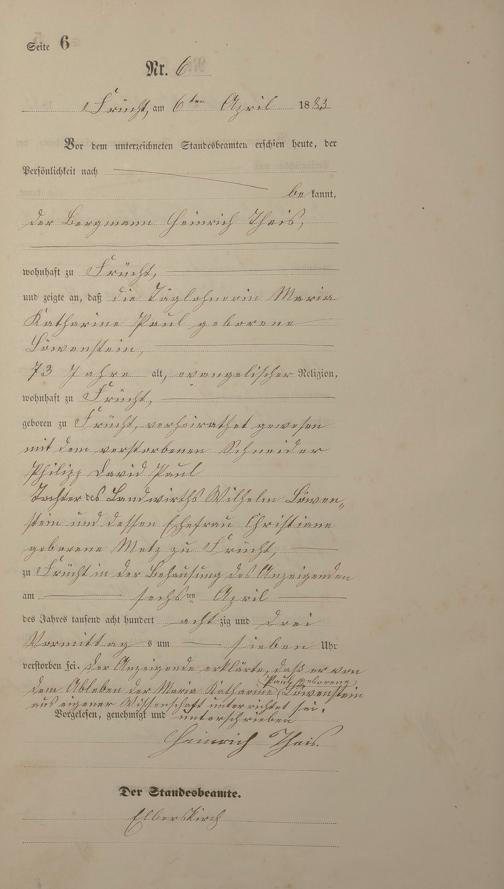 Seite 6
Nr. 6
Frücht, am 6ten April 1883
Vor dem unterzeichneten Standesbeamten erschien heute, der
Persönlichkeit nach
be kannt,
der Bergmann Heinrich Theis,
wohnhaft zu Frücht,
und zeigte an, daß die Taglöhnerin Maria
Katharine Paul geborene
Löwenstein,
73 Jahre alt, evangelischer Religion,
wohnhaft zu Frücht,
geboren zu Frücht, verheirathet gewesen
mit dem verstorbenen Schneider
Philipp David Paul
Tochter des Landwirths Wilhelm Löwen-
stein und dessen Ehefrau Christiane
geborene Metz zu Frücht,
zu Frücht in der Behausung des Anzeigenden
am sechsten April
des Jahres tausend acht hundert achtzig und drei
Vormittags um sieben Uhr
verstorben sei. Der Anzeigende erklärte, daß er von
dem Ableben der Maria Katharine Paul geborene Löwenstein
aus eigener Wissenschaft unterrichtet sei.
Vorgelesen, genehmigt und unterschrieben
Heinrich Theis.
Der Standesbeamte.
Elberskirch